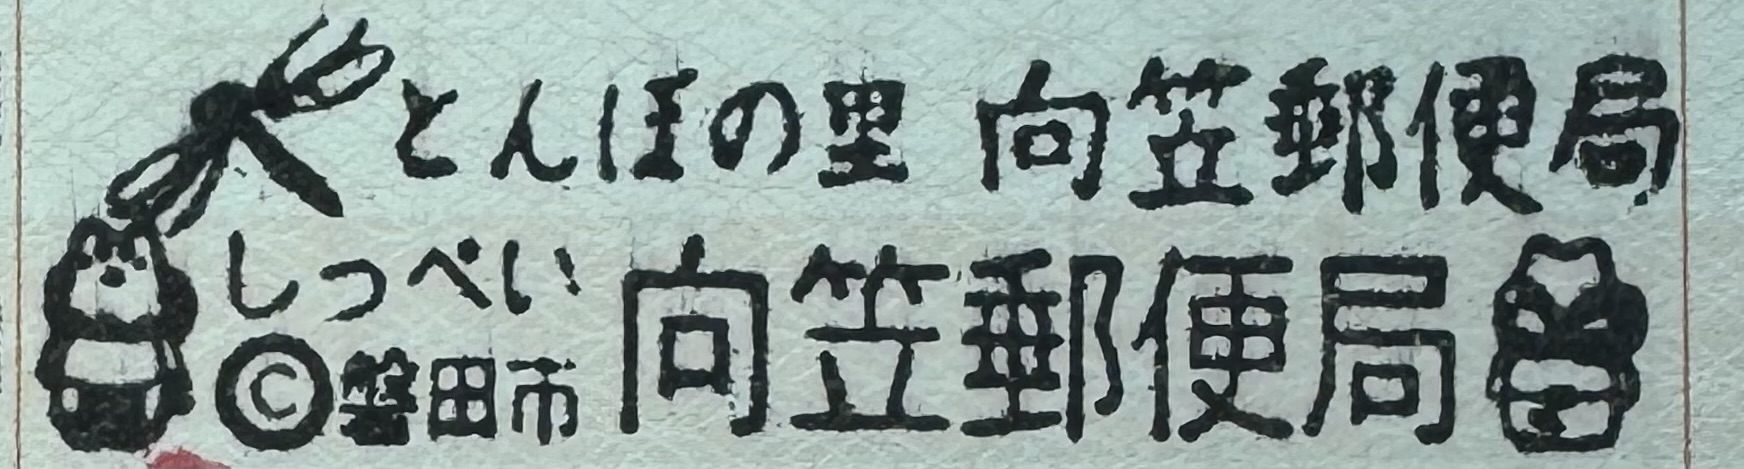 とんぼの里 向笠郵便局
しっぺい 向笠郵便局
©磐田市